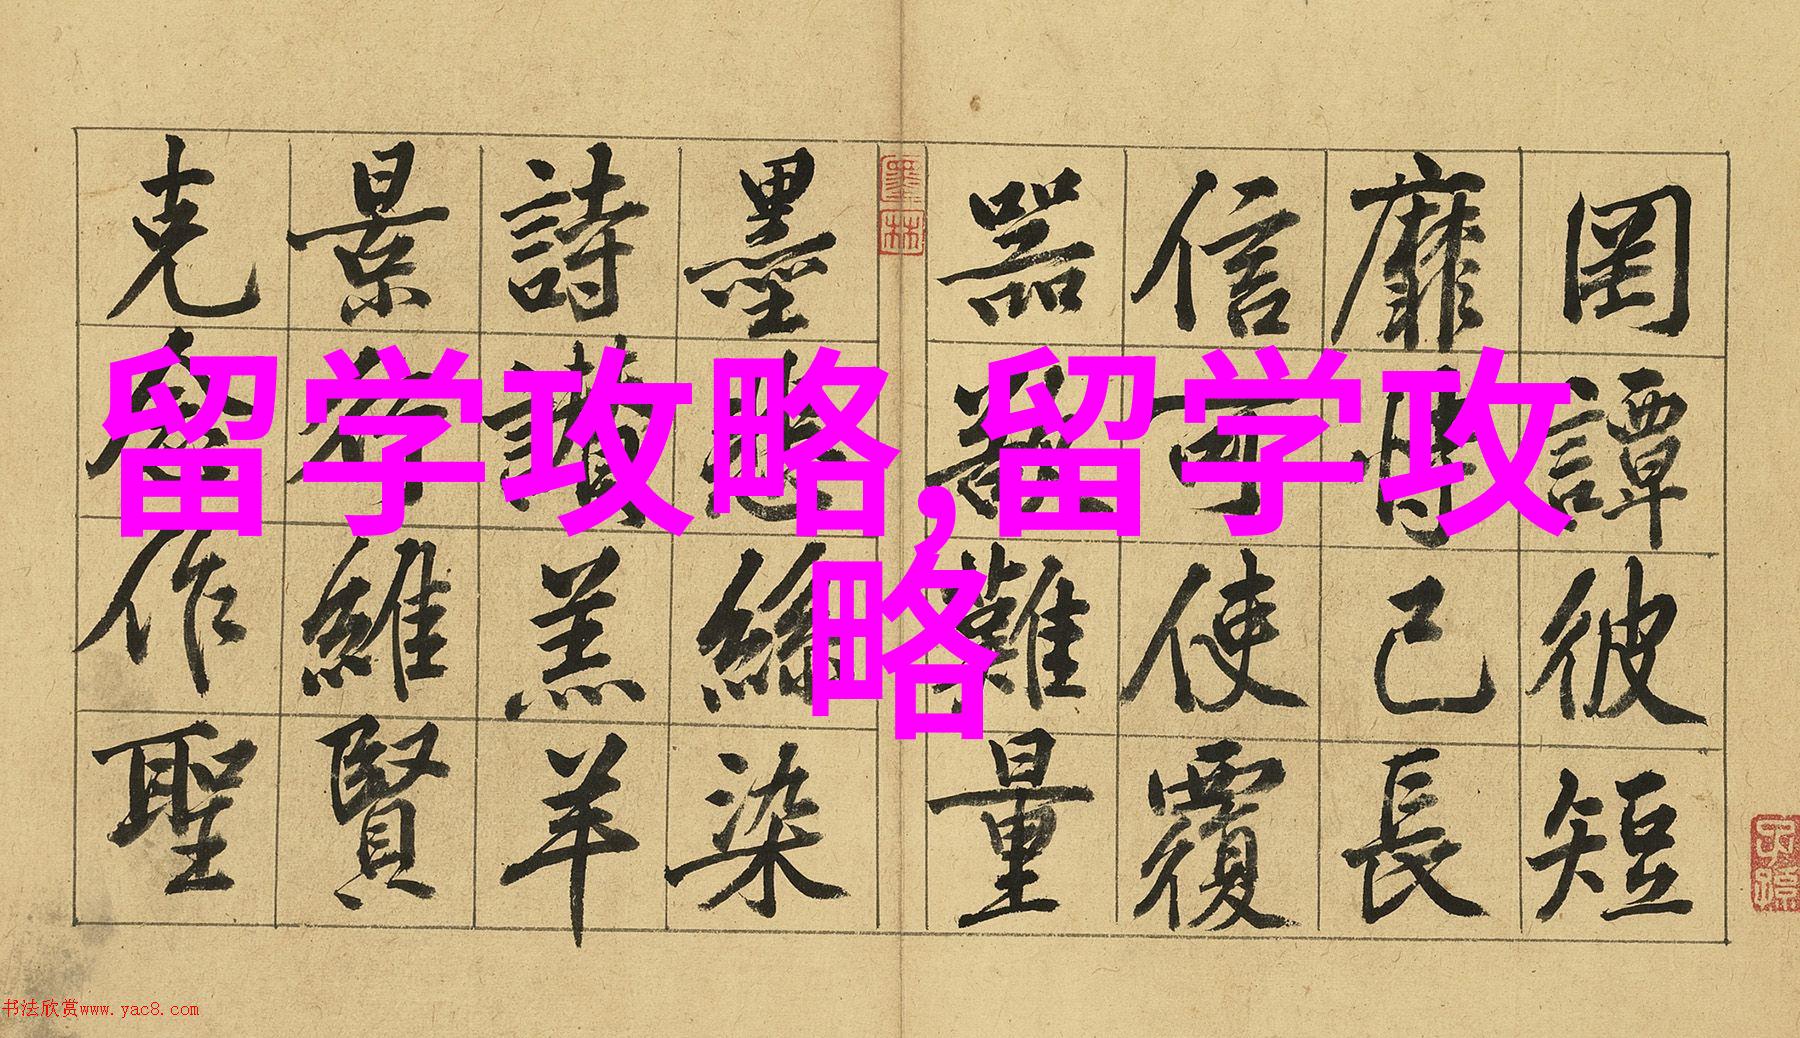 罔譚彼短
靡恃己長
信可使覆
器欲難量
墨悲絲染
詩讚羔羊
景行維賢
克念作聖
墨林
留学攻略,留学攻
略
书法欣赏www.yac8.com